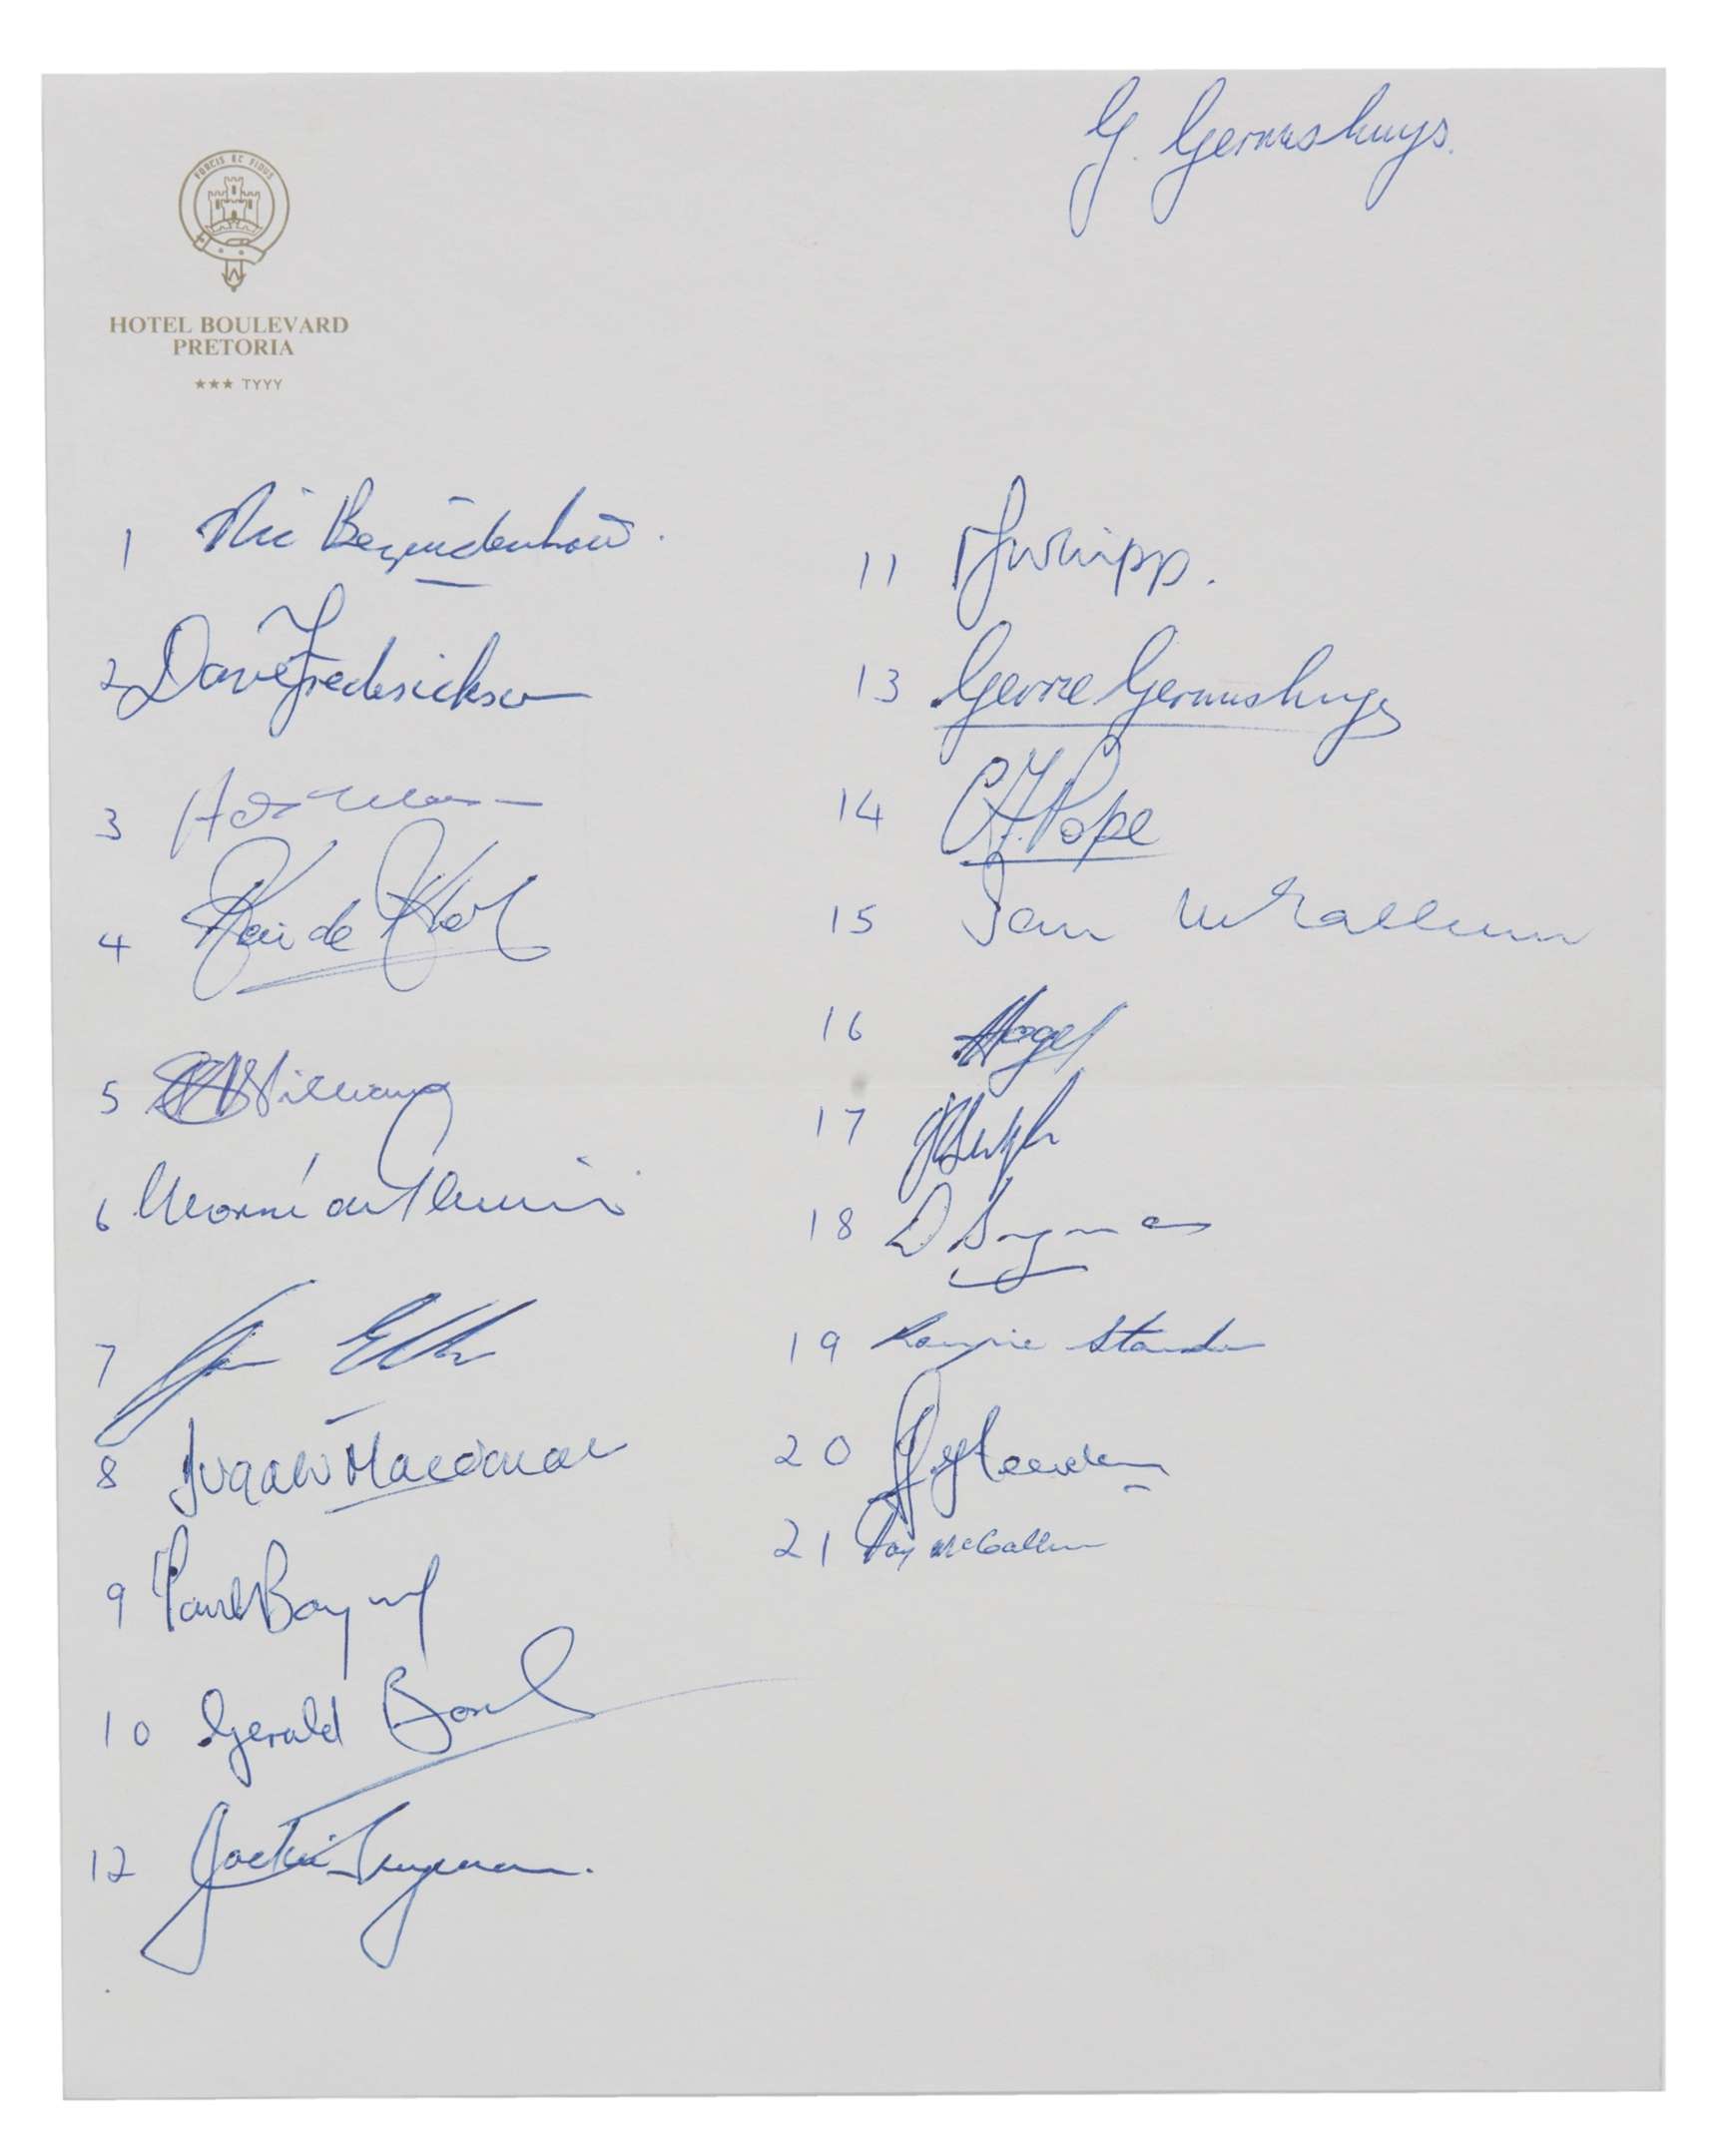 G. Germishuys.
FORCIS ET FIDUS
HOTEL BOULEVARD
PRETORIA
★★★ TYYY
1 Nic Bezuidenhout.
2 Dave Frederickson
3
4 de
5 Williams
6 Morné du Plessis
7
8 Dugald Macdonald
9 Paul Bayvel
10 Gerald Bosch
12 Jackie Snyman.
11 Whipp.
13 Gerrie Germishuys
14 C.F. Pope
15 Ian McCallum
16
17
18 D Snyman
19 Rampie Stander
20
21 Roy McCallum